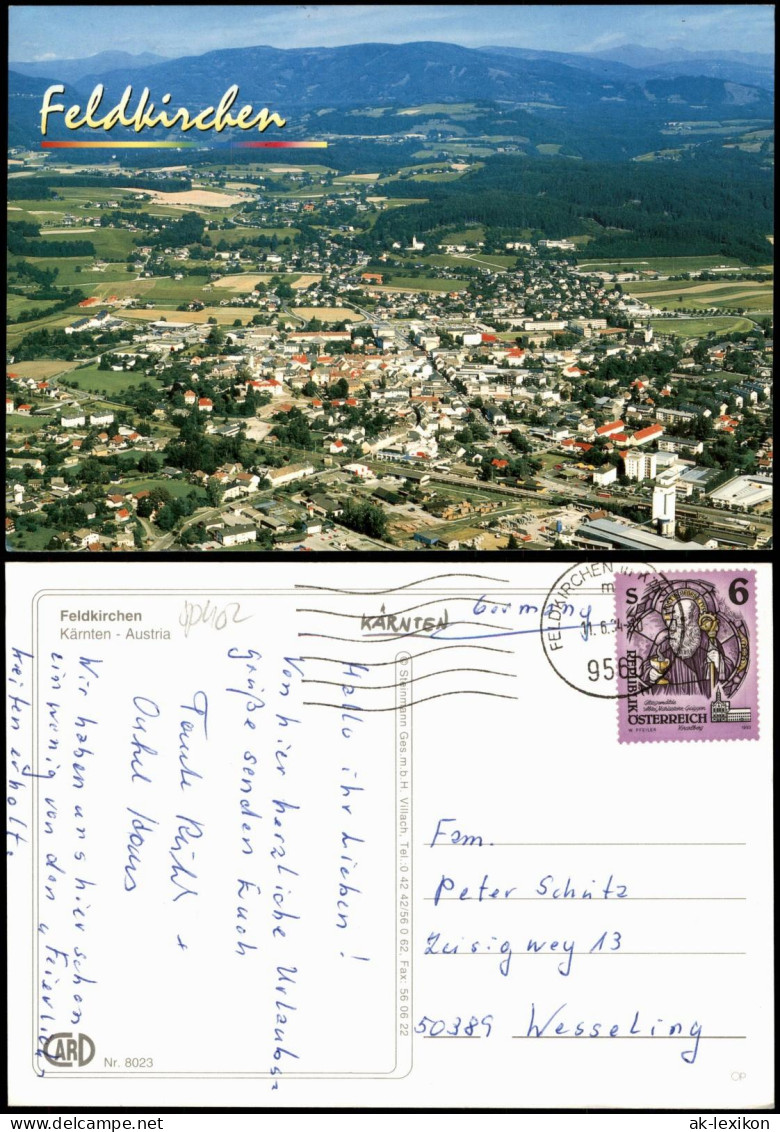 Feldkirchen
Feldkirchen
Kärnten - Austria
KÄRNTEN
Germany
FELDKIRCHEN
11.6.94
956
S 6
REPUBLIK
ÖSTERREICH
W. PFEILER
1993
Hallo ihr Lieben!
Von hier herzliche Urlaubs-
grüße senden Euch
Tante Rühl +
Onkel Hans
Wir haben uns hier schon
ein wenig von den „Feierlich-
keiten erholt.
© Steinmann Ges.m.b.H. Villach, Tel.: 0 42 42/56 0 62, Fax: 56 06 22
Fam.
Peter Schütz
Zeisigweg 13
50389 Wesseling
CARD
Nr. 8023
OP
ak-lexikon